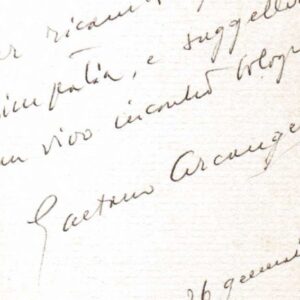 er ricam
simpatia, e suggello
un vivo incontro bologn
Gaetano Arcange
26 genna